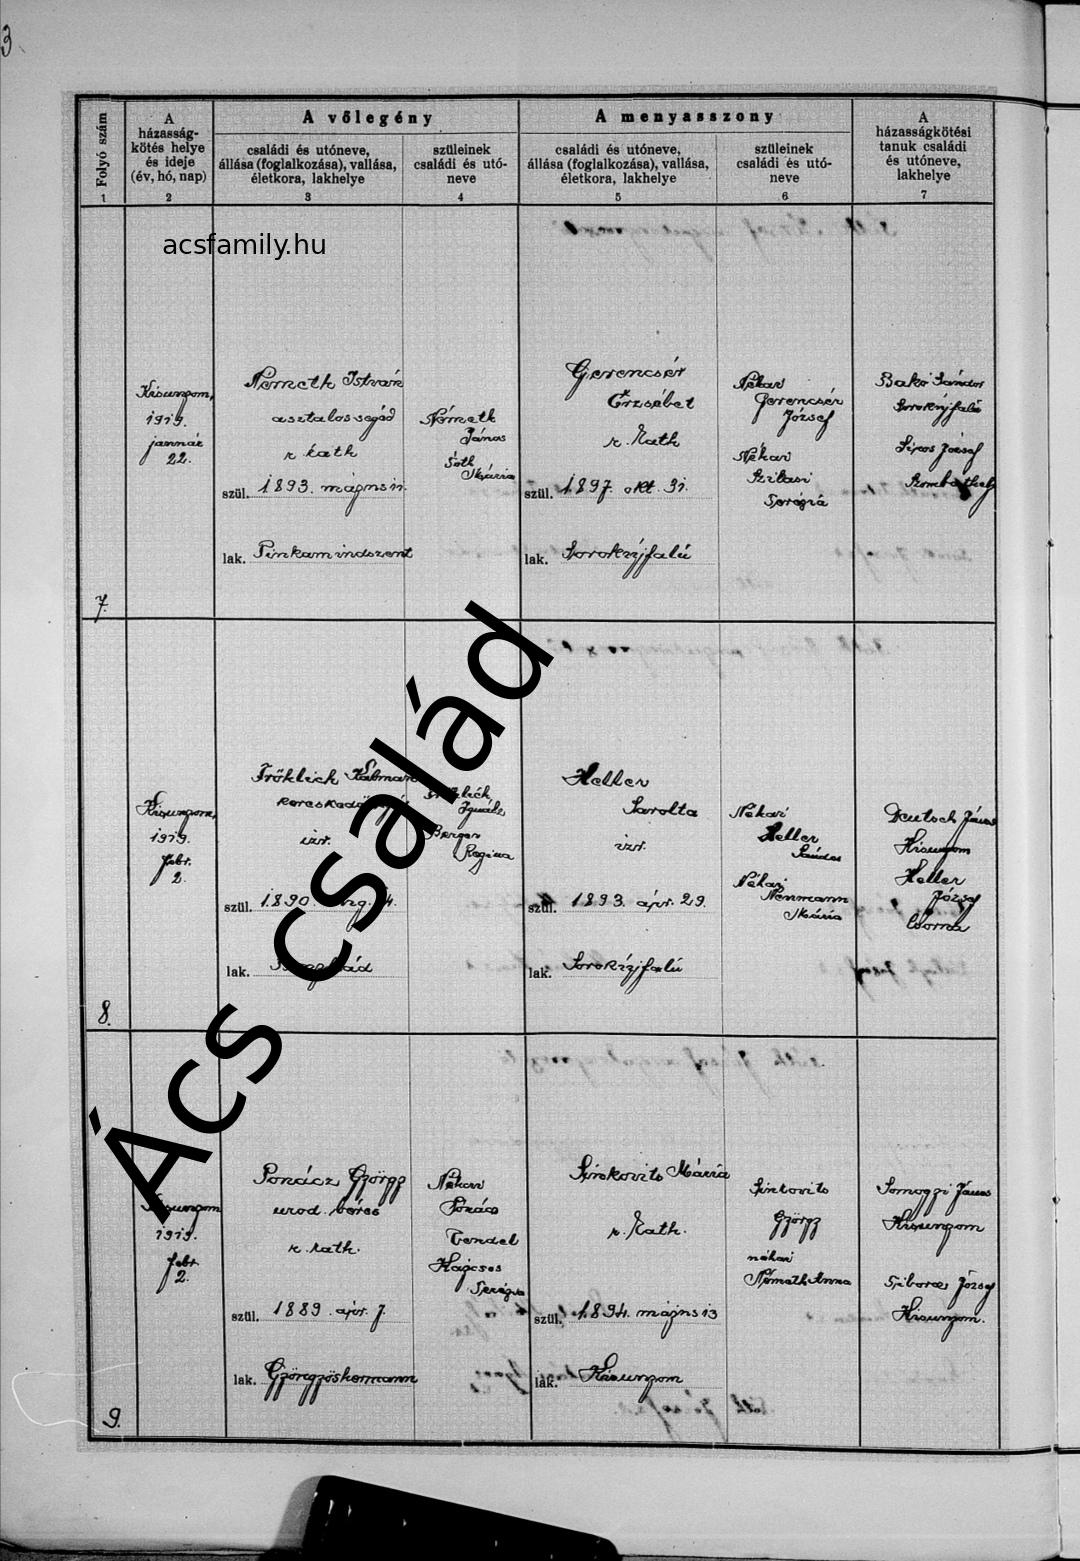 3
Folyó szám
1
A
házasság-
kötés helye
és ideje
(év, hó, nap)
2
A vőlegény
családi és utóneve,
állása (foglalkozása), vallása,
életkora, lakhelye
3
szüleinek
családi és utó-
neve
4
A menyasszony
családi és utóneve,
állása (foglalkozása), vallása,
életkora, lakhelye
5
szüleinek
családi és utó-
neve
6
A
házasságkötési
tanuk családi
és utóneve,
lakhelye
7
acsfamily.hu
7.
Kisunyom,
1919.
január
22.
Németh István
asztalos segéd
r. kath
szül. 1893. május 11.
lak. Pinkamindszent
Németh
János
Tóth
Mária
Gerencsér
Erzsébet
r. Kath
szül. 1897. okt. 31.
lak. Sorokújfalú
Néhai
Gerencsér
József
Néhai
Szilasi
Terézia
Bakó Sándor
Sorokújfalú
Sipos József
Szombathely
8.
Kisunyom,
1919.
febr.
2.
Fröhlich Kálmán
izr.
szül. 1890.
lak.
Ignácz
Berger
Regina
Heller
Sarolta
izr.
szül. 1893. ápr. 29.
lak. Sorokújfalú
Néhai
Heller
Sándor
Néhai
Neumann
Mária
Deutsch János
Kisunyom
Heller
József
Csorna
9.
Kisunyom
1919.
febr.
2.
Ponácz György
urod. béres
r. kath.
szül. 1889. ápr. 7
lak. Gyöngyöshermann
Néhai
Ponácz
Vendel
Terézia
Sinkovits Mária
r. Kath.
szül. 1894. május 13
lak. Kisunyom
Sinkovits
György
néhai
Németh Anna
Somogyi János
Kisunyom
Tibola József
Kisunyom.
Ács család